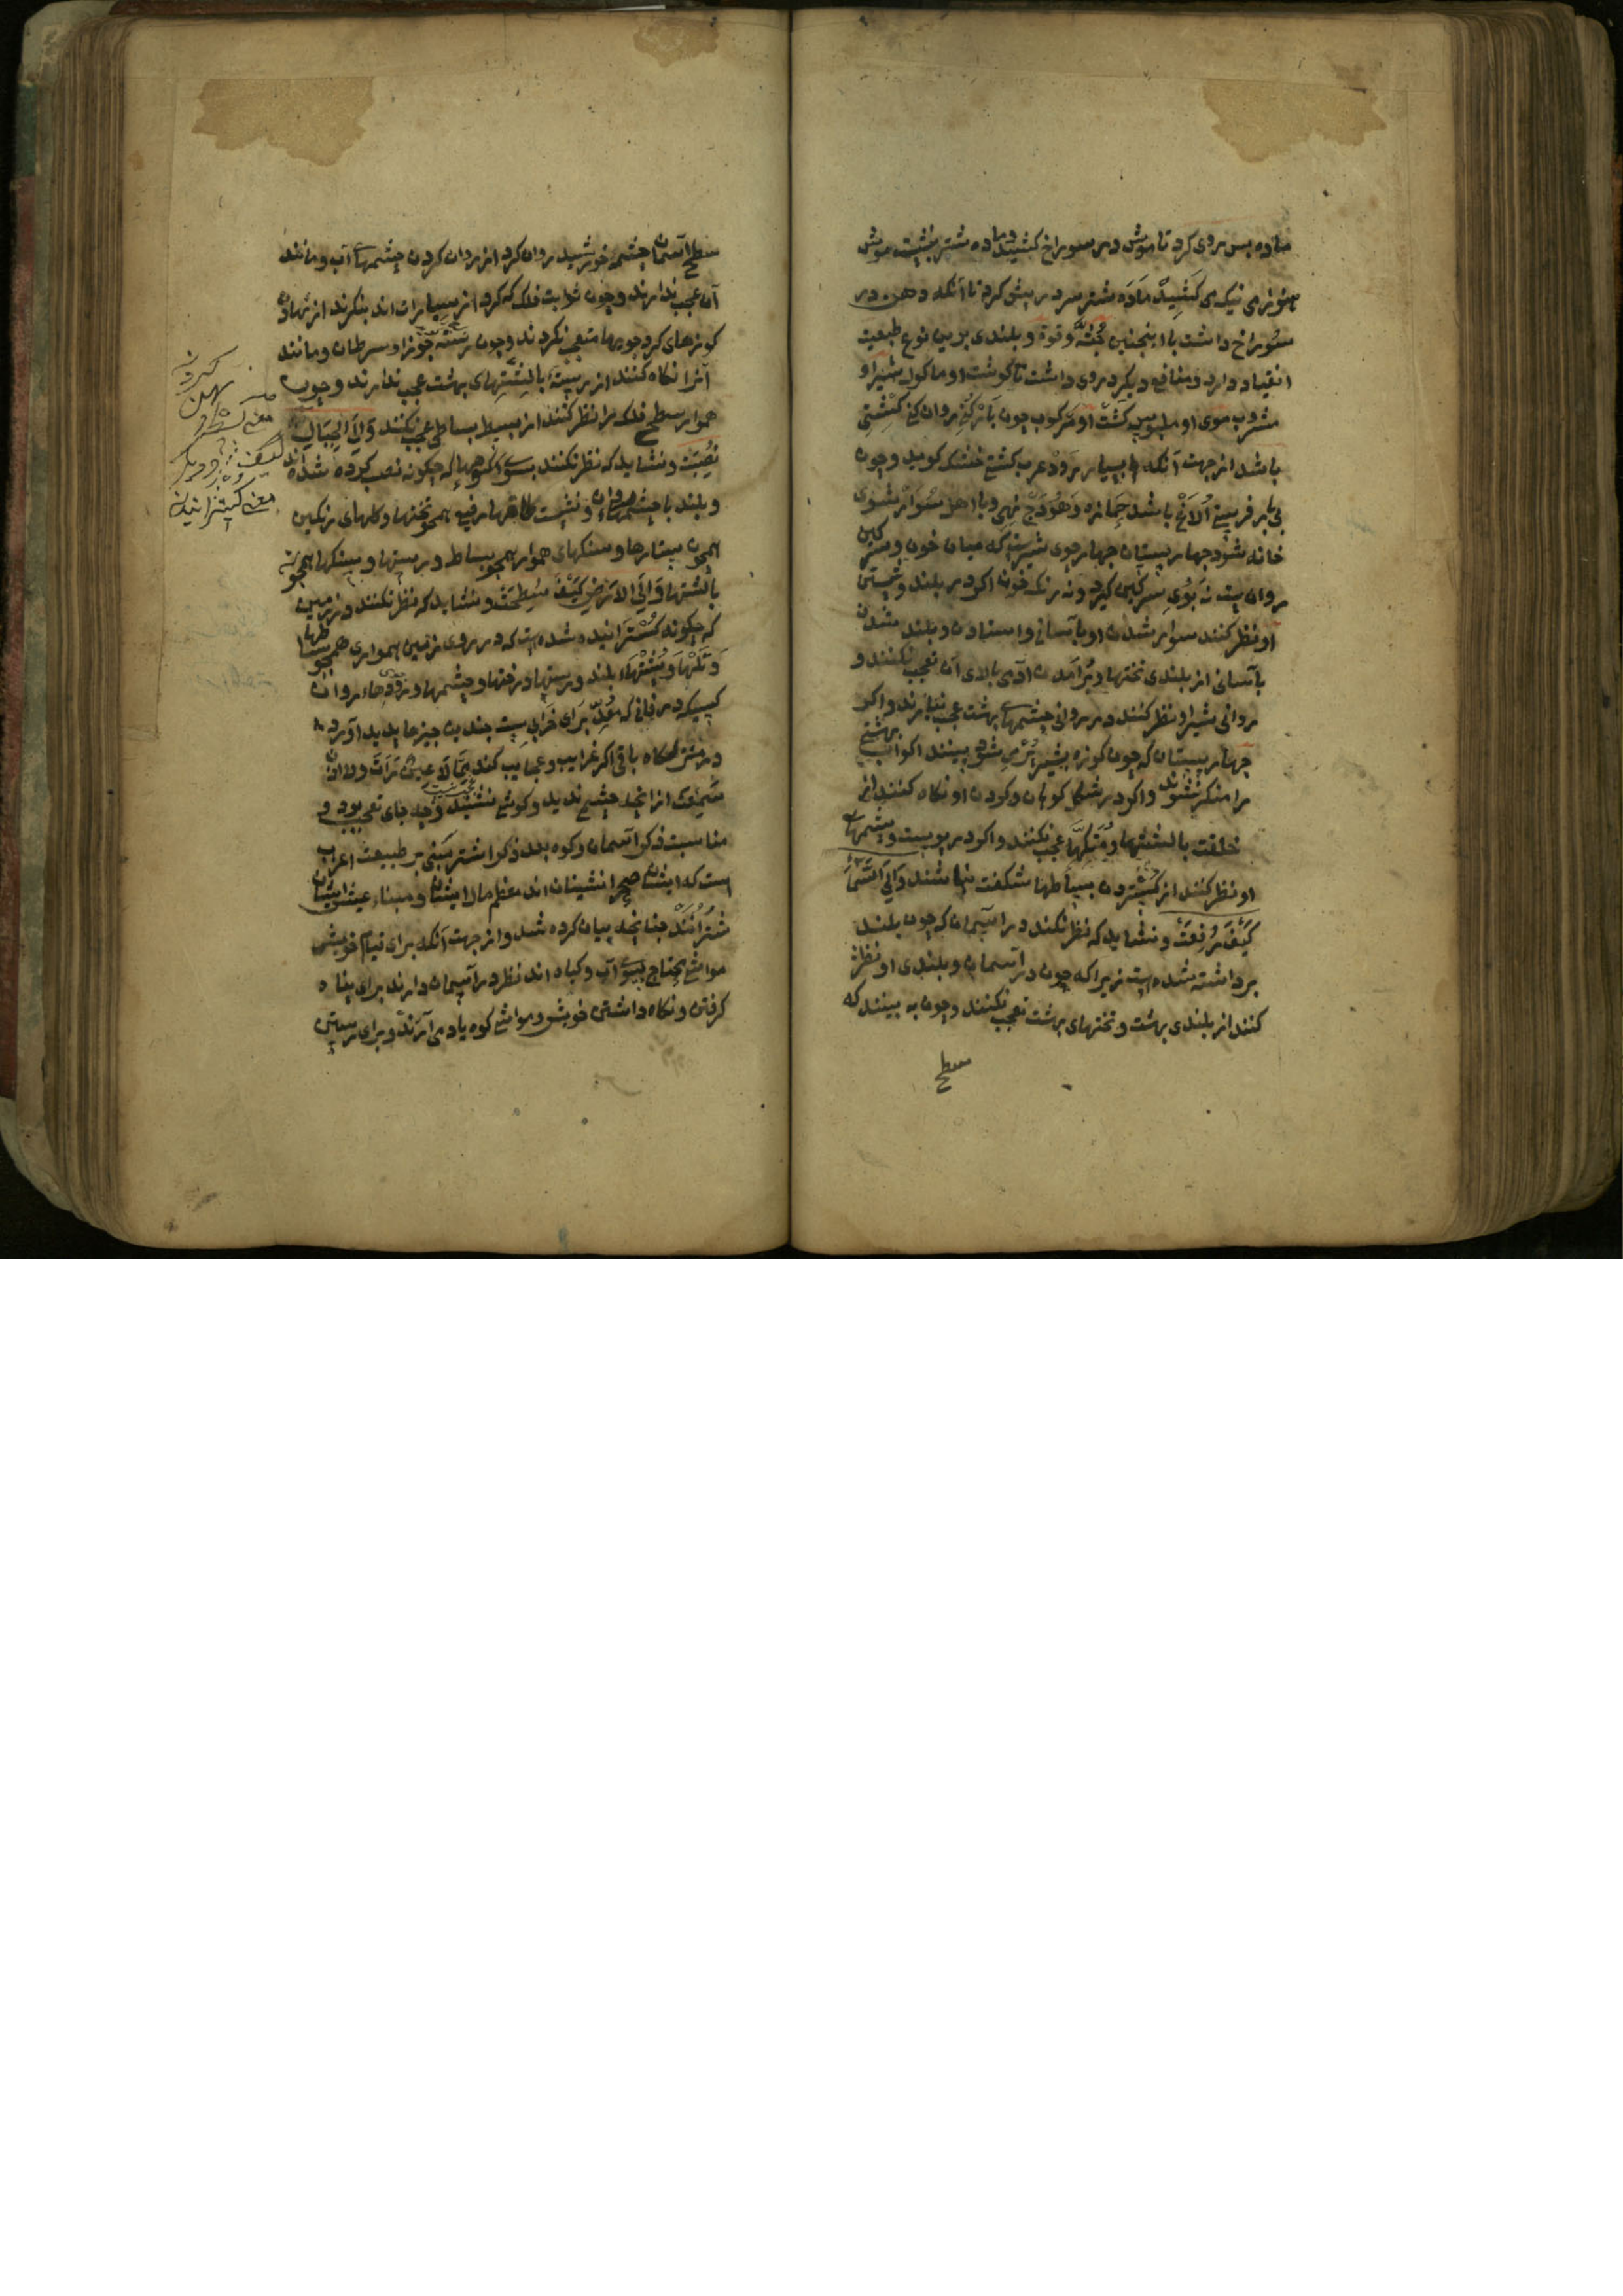 ماده بس روی کرد تا موش در سوراخ کشید و ماده شتر بنشست موش
هنوز می کشید ماده شتر سر در پیش کرد تا آنکه دهن در
سوراخ داشت با اینچنین جثه و قوة و بلندی برین نوع طبعیت
انقیاد دارد و منافع دیکر در وی داشت تا کوشت او ماکول شیر او
مشروب موی او ملبوس کشت او مرکوب چون بار کنی روان کنی کشتی
باشد از جهت آنکه بسیار رود عرب کشتی خشک کوید و چون
بی بار فرستی الاغ باشد جمازه و هودج نهی و با اهل سوار شوی
خانه شود چهار پستان چهار جوی شیرست که میان خون و سرکین
روان است نه بوی سرکین کیرد و نه رنک خون اکر در بلند و پستی
او نظر کنند سوار شدن او بآسانی و استادن و بلند شدن
بآسانی از بلندی تختها و برآمدن آدمی بالای آن تعجب نکنند و
روانی شیر او نظر کنند در روانی چشمهای بهشت عجب نیارند و اکر
چهار پستان که چون کوزه بشیر پر می شود بینند اکواب بهشتی
را منکر نشوند و اکر در شکل کوهان و کودن او نکاه کنند از
خلقت بالشتها و متکها عجب نکنند و اکر در پوست و پشمهای
او نظر کنند از کستردن بساطها شکفت نباشند وَاِلَی السَّمَآءِ
کَیْفَ رُفِعَتْ و نشاید که نظر نکنند در آسمان که چون بلند
برداشته شده است زیرا که چون در آسمان و بلندی او نظر
کنند از بلندی بهشت و تختهای بهشت تعجب نکنند و چون به بینند که
سطح
سطح آسمان چشمه خورشید روان کرد از روان کردن چشمهای آب و مانند
آن عجب ندارند و چون ثوابت فلک که کرد از سیارات اند بنکرند از نهادن
کوزهای کرد جویها متعجب نکردند و چون رسته جوزا و سرطان و مانند
آنرا نکاه کنند از رستهٔ بالشتهای بهشت عجب ندارند و چون
هموار سطح فلک را نظر کنند از بسیط بساطی عجب نکنند وَاِلَی الْجِبَالِ کیف
نُصِبَتْ و نشاید که نظر نکنند بسوی کوهها که چکونه نصب کرده شده اند
و بلند با چشمهای روان و نشست طاقها رفیع همچو تختها و کلهای رنکین
همچون ستارها و سنکهای هموار همچو بساط و رستها و سنکها همچو
بالشتها وَاِلَی الْاَرْضِ کَیْفَ سُطِحَتْ و نشاید که نظر نکنند در زمین
که چکونه کسترانیده شده است که در روی زمین همواری همچو بساطها
و تلها و پشتهاء بلند و رستها درختها و چشمها و رودهاء روان
کسیکه در فانی که معد برای خرابی ست چندین چیزها پدید آورد
در منزلکاه باقی اکر غرایب و عجایب کند مما لا عین رأت ولا اذن
سمعت از آنچه چشم ندید و کوش نشنید چه جای تعجب بود و
مناسبت ذکر آسمان و کوه بعد ذکر اشتر مبنی بر طبیعت اعراب
است که ایشان صحرانشینان اند معظم مال ایشان و مبناء عیش ایشان
شترانند چنانچه بیان کرده شد و از جهت آنکه برای قیام خویش
مواشی محتاج بسوی آب و کیاه اند نظر در آسمان دارند برای پناه
کرفتن و نکاه داشتن خویش و مواشی کوه یاد می آرند و برای رستن